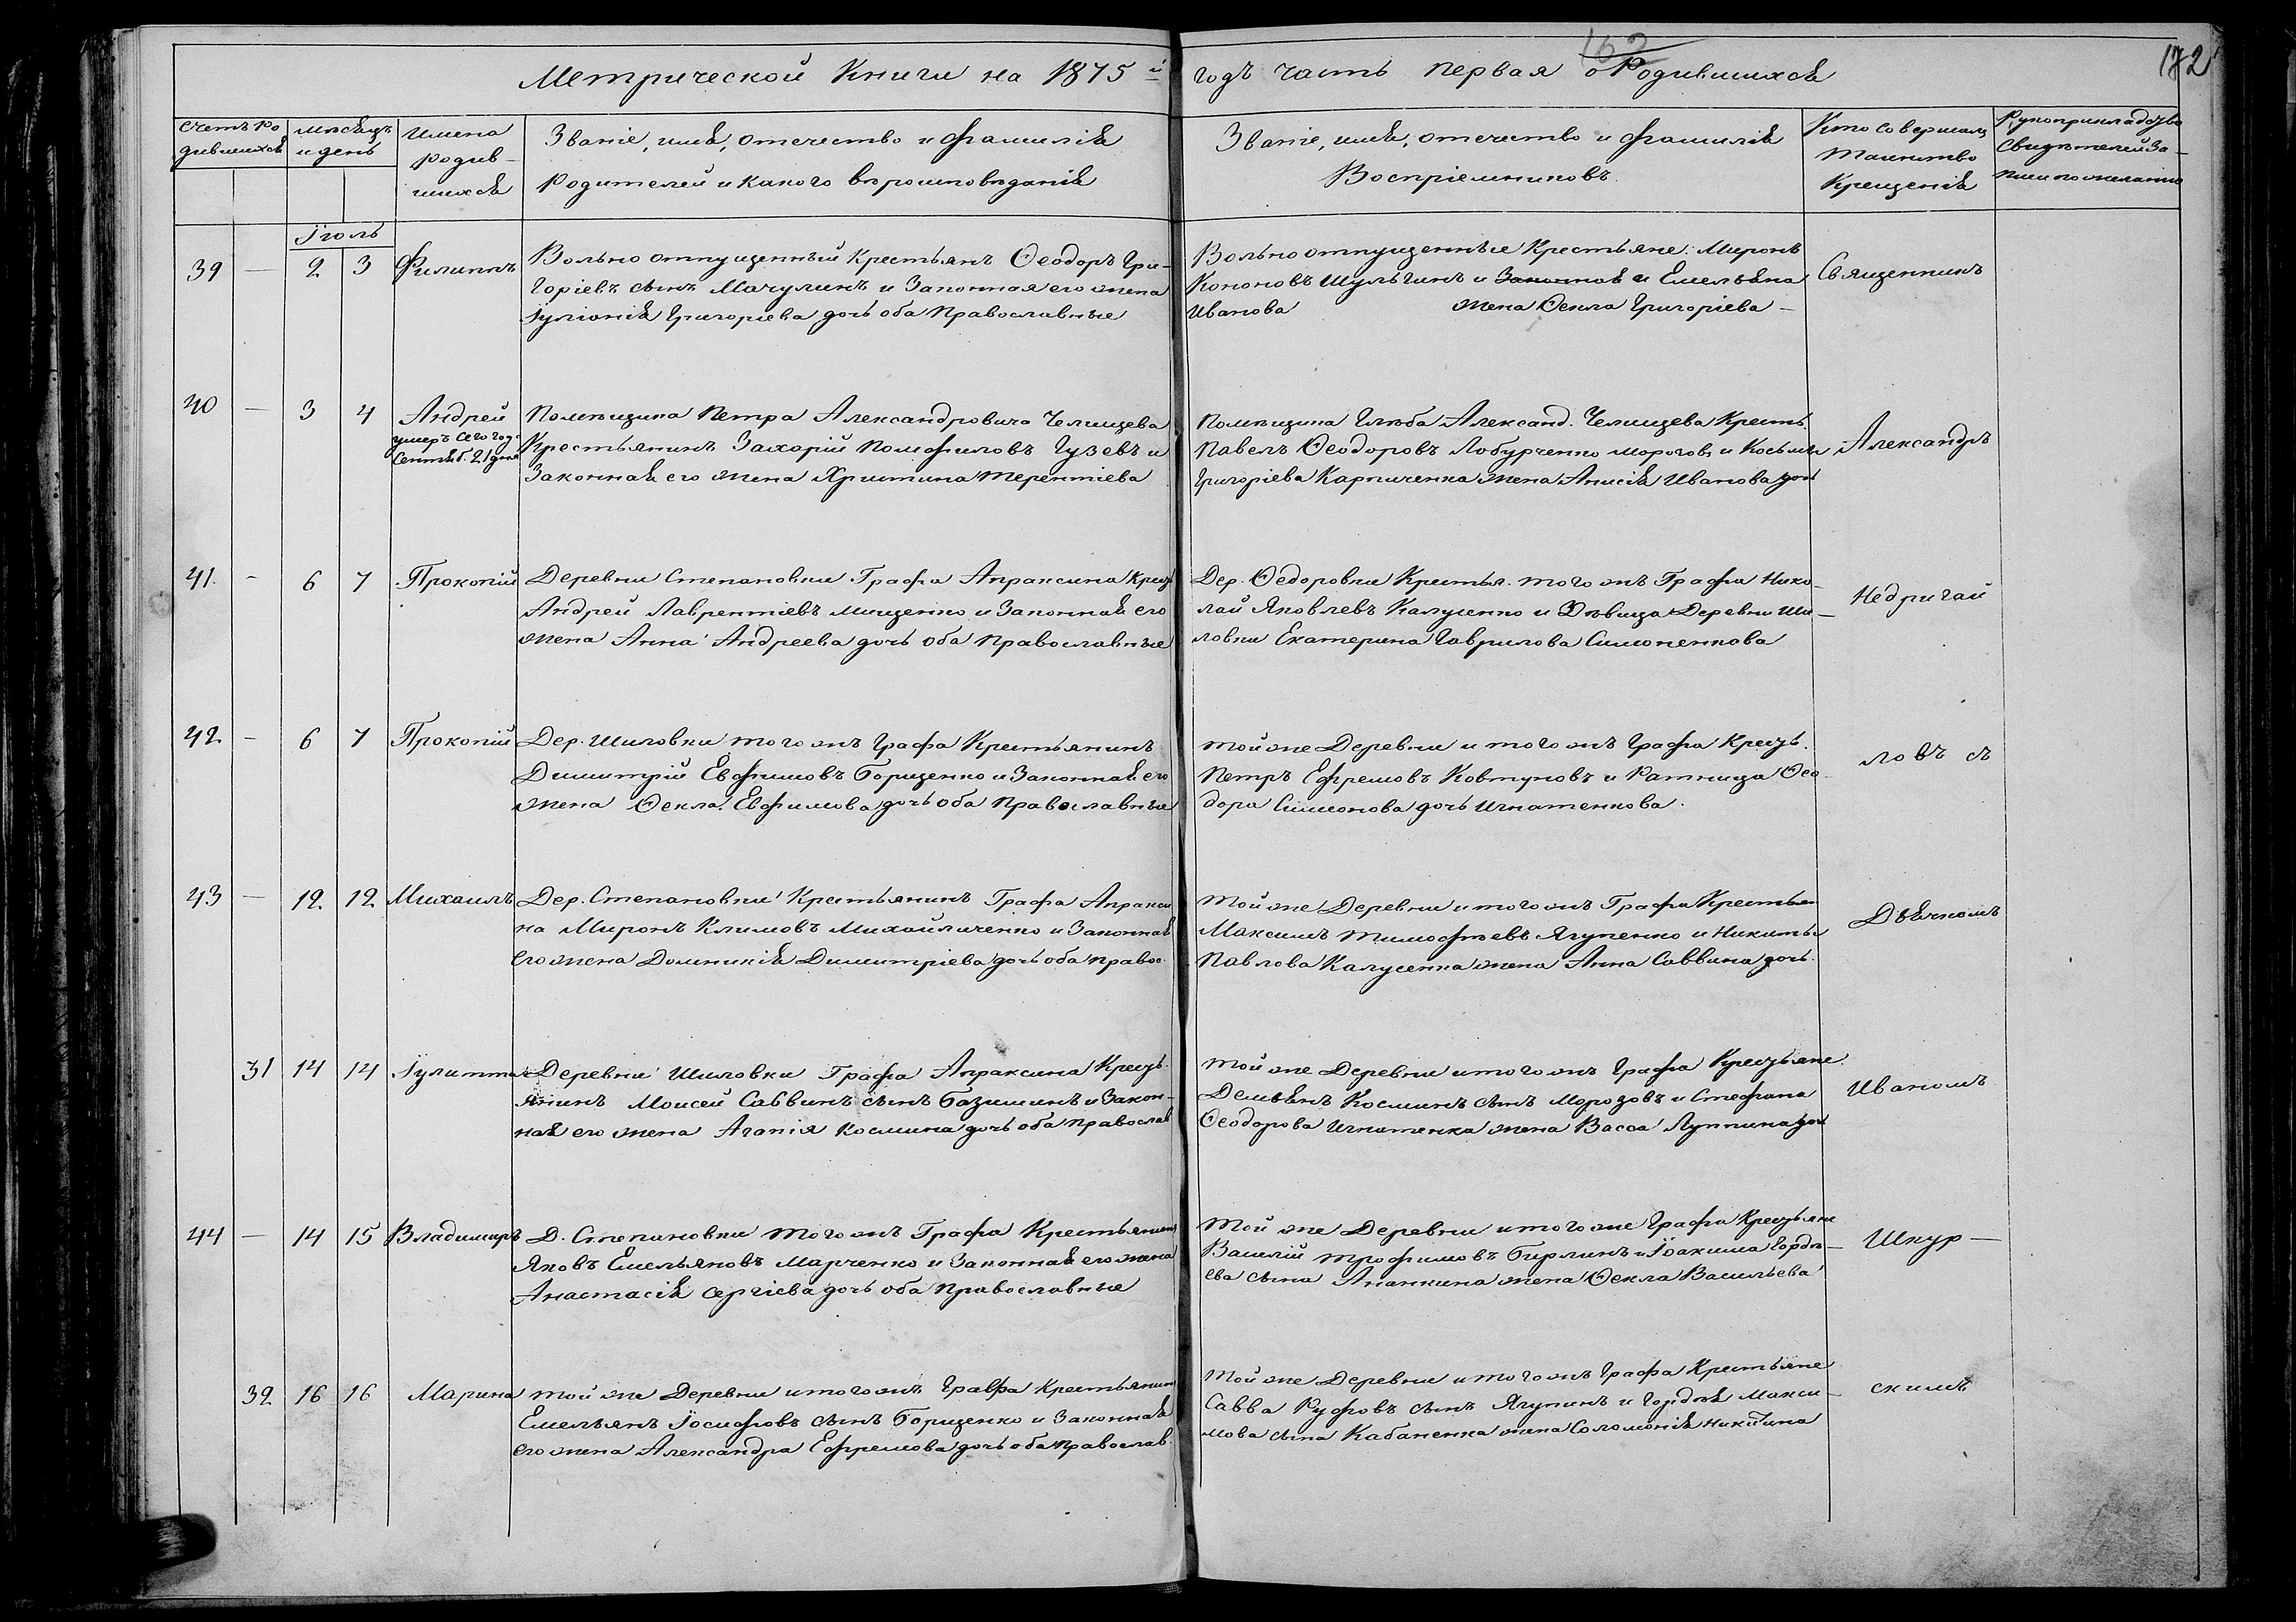 162
172
Метрической Книги на 1875й годъ часть первая о Родившихся
Счетъ Ро
дившихся
Мѣсяцъ
и день
Имена
родив-
шихся
Званіе, имя, отечество и фамилія
Родителей и какого вѣроисповѣданія
Званіе, имя, отечество и фамилія
Воспріемниковъ.
Кто совершалъ
Таинство
Крещенія
Рукоприкладство
Свидѣтелей за-
писи по желанію
Іюль
39 — 2 3 Филиппъ
Вольно отпущенный Крестьянъ Ѳеодоръ Гри-
горіевъ сынъ Мачулинъ и Законная его жена
Іуліанія Григоріева дочь оба Православные
Вольно отпущенные Крестьяне: Миронъ
Кононовъ Шульгинъ и Законная и Емельяна
Иванова жена Ѳекла Григоріева —
Священникъ
40 — 3 4 Андрей
умеръ сего год.
Сентяб. 21 дня
Помѣщика Петра Александровича Челищева
Крестьянинъ Захарій Памфиловъ Гузевъ и
Законная его жена Христина Терентіева
Помѣщика Глѣба Александ. Челищева Кресть.
Павелъ Ѳеодоровъ Лобурченко Морозовъ и Косьмы
Григоріева Карпиченка жена Анисія Иванова доч
Александръ
41. - 6 7 Прокопій
Деревни Степановки Графа Апраксина Крест
Андрей Лаврентіевъ Мищенко и Законная его
жена Анна Андреева дочь оба Православные
Дер. Ѳедоровки Крестья. того жъ Графа Нико-
лай Яковлевъ Калусенко и Дѣвица Деревни Ши-
ловки Екатерина Гаврилова Симоненкова
Недригай
42 - 6 7 Прокопій
Дер. Шиловки того жъ Графа Крестьянинъ
Димитрій Евфимовъ Борщенко и Законная его
жена Ѳекла Евфимова дочь оба Православные
Той же Деревни и того жъ Графа Крест.
Петръ Ефремовъ Ковтуновъ и Ратница Ѳео-
дора Симеонова дочь Игнатенкова.
ловъ съ
43 — 12 12 Михаилъ
Дер. Степановки Крестьянинъ Графа Апракси
на Миронъ Климовъ Михайличенко и Законная
его жена Домникія Димитріева дочь оба правос.
Той же Деревни и того жъ Графа Крестьян
Максимъ Тимофѣевъ Ягупенко и Никиты
Павлова Калусенка жена Анна Саввина дочь.
Дьячкомъ
31 14 14 Іулитта
Деревни Шиловки Графа Апраксина Крест.
янинъ Моисей Саввинъ сынъ Базиминъ и Закон-
ная его жена Агапія Космина дочь оба православ
Той же Деревни и того жъ Графа Крестьяне
Демьянъ Косминъ сынъ Морозовъ и Стефана
Ѳеодорова Игнатенка жена Васса Луппина доч
Иваномъ
44 — 14 15 Владимиръ
Д. Степановки того жъ Графа Крестьянинъ
Яковъ Емельяновъ Марченко и Законная его жена
Анастасія Сергіева дочь оба Православные
Той же Деревни и того же Графа Крестьяне
Василій Трофимовъ Бирлинъ и Іоакима Горде-
ева сына Ананкина жена Ѳекла Васильева
Шкур —
32 16 16 Марина
Той же Деревни и того жъ Графа Крестьянин
Емельянъ Іосифовъ сынъ Борщенко и Законная
его жена Александра Ефремова дочь оба православ.
Той же Деревни и того жъ Графа Крестьяне
Савва Руфовъ сынъ Ягупинъ и Гордѣя Макси-
мова сына Кабаненка жена Соломонія Никитина
скимъ